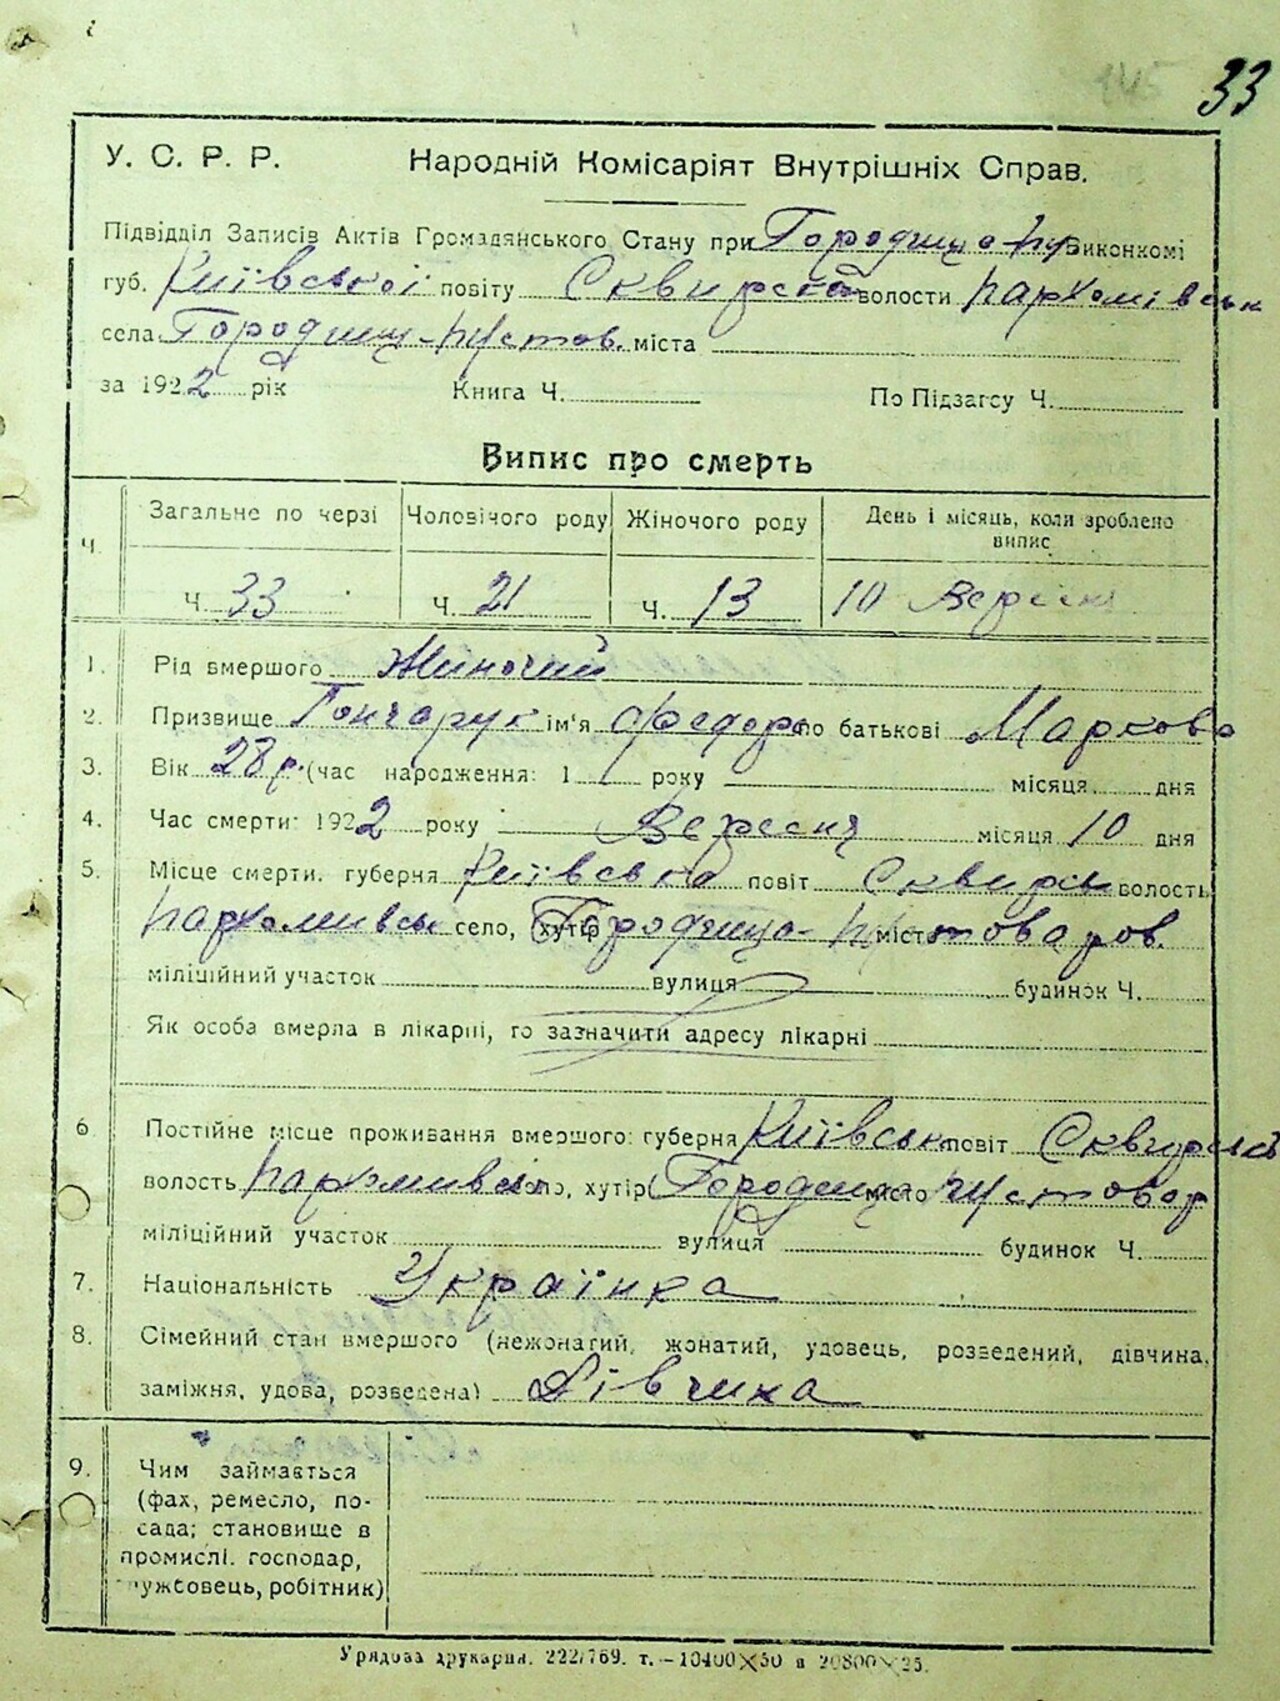 145 33
У. С. Р. Р. Народній Комісаріят Внутрішніх Справ.
Підвідділ Записів Актів Громадянського Стану при Городище-Пу Виконкомі
губ. Київської повіту Сквирсько волости Пархомівськ
села Городищ-Пустов. міста
за 1922 рік Книга Ч. По Підзагсу Ч.
Випис про смерть
Ч. Загальне по черзі Чоловічого роду Жіночого роду День і місяць, коли зроблено випис
Ч. 33 Ч. 21 Ч. 13 10 Вересня
1. Рід вмершого Жиночий
2. Призвище Гончарук ім'я Федора по батькові Маркова
3. Вік 28 р. (час народження: 1 року місяця дня
4. Час смерти: 1922 року Вересня місяця 10 дня
5. Місце смерти. губерня Київська повіт Сквирськ волость
Пархомивськ село, хутір Городище- Пустоваров. місто
міліційний участок вулиця будинок Ч.
Як особа вмерла в лікарні, то зазначити адресу лікарні
6. Постійне місце проживання вмершого: губерня Київська повіт Сквирська
волость Пархомивсько село, хутір Городище місто Пустовар
міліційний участок вулиця будинок Ч.
7. Національність Українка
8. Сімейний стан вмершого (нежонатий, жонатий, удовець, розведений, дівчина,
заміжня, удова, розведена) Дівчина
9. Чим займається
(фах, ремесло, по-
сада; становище в
промислі. господар,
служсовець, робітник)
Урядова друкарня. 222/769. т.-10400×50 и 20800×25.